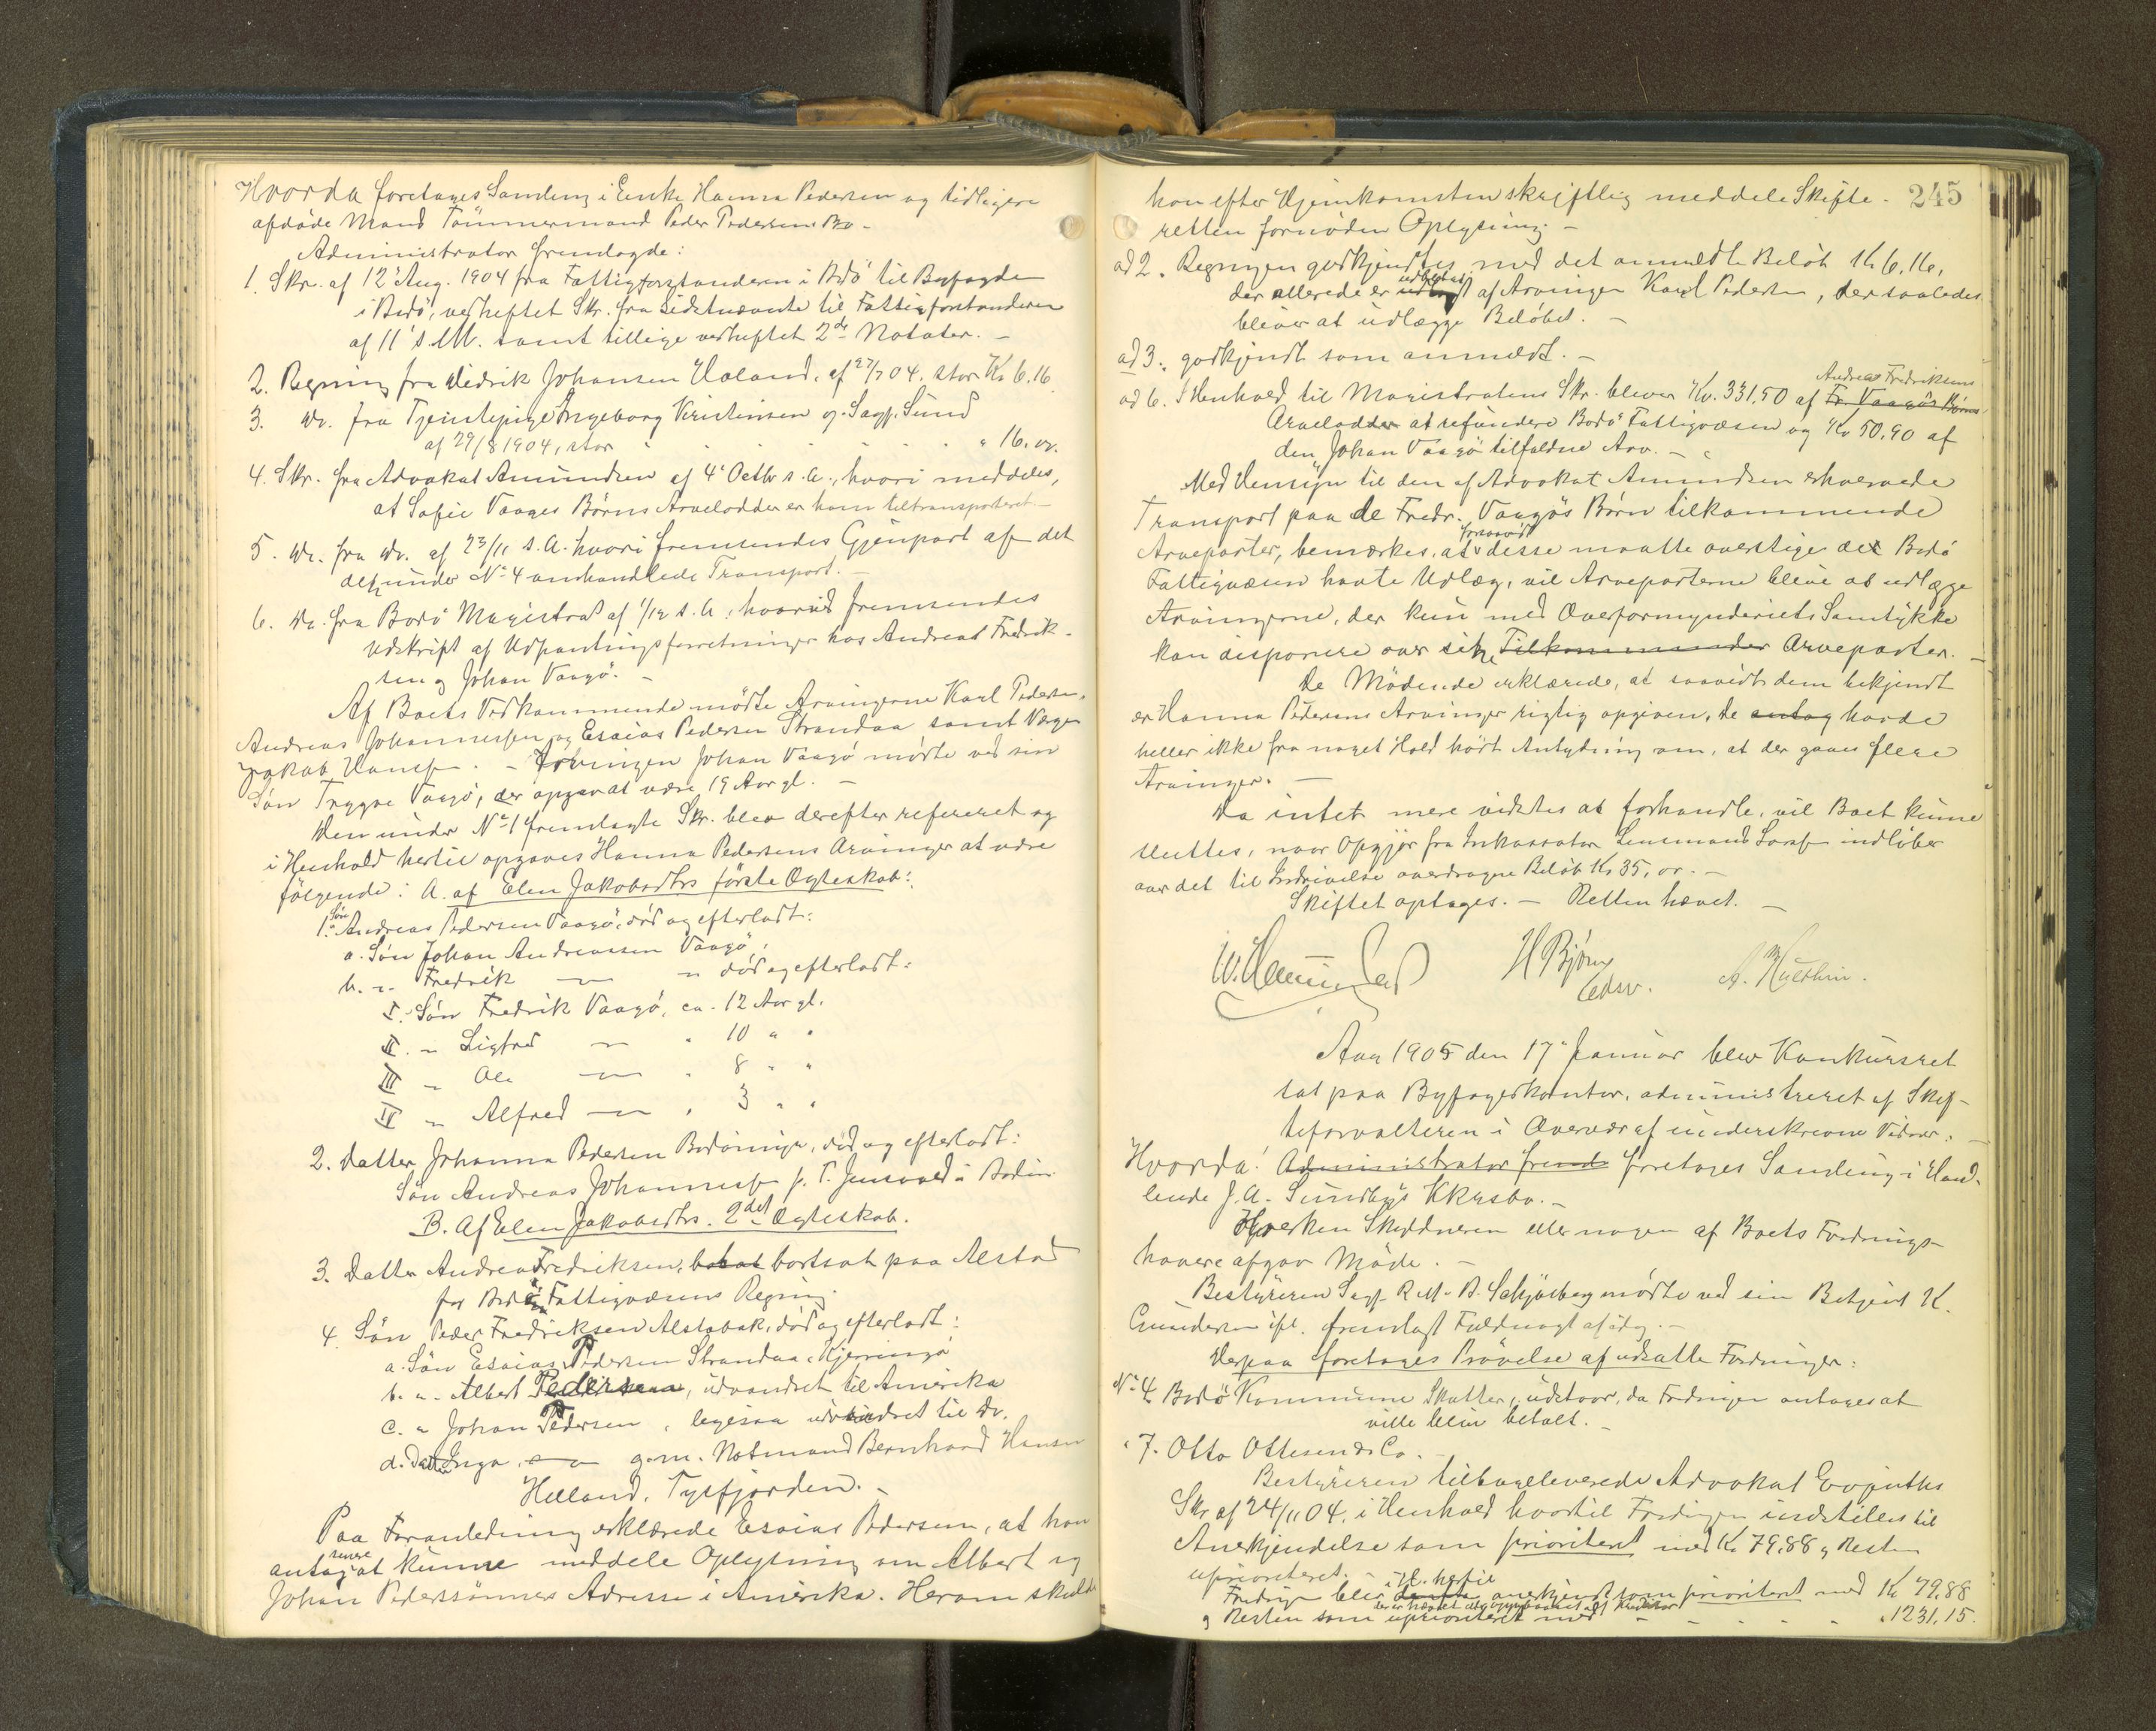 Hvorda foretages Samling i Enke Hanna Pedersen og tidligere
afdøde Mand Tømmermand Peder Pedersens Bo -
Administrator fremlagde:
1. Skr. af 12' Aug. 1904 fra Fattigforstanderen i Bodø til Byfogden
i Bodø, vedheftet Skr. fra Sidstnævnte til Fattigforstanderen
af 11' s. M. samt tillige vedheftet 2de Notater. -
2. Regning fra Didrik Johansen Haland, af 27/7 04. stor Kr 6.16
3. Do. fra Tjenstepige Ingeborg Kristensen v. Sagf. Sund
af 29/8 1904, stor . . . . . " 16. or.
4. Skr. fra Advokat Amundsen af 4' Octbr s. A., hvori meddeles,
at Sofie Vaages Børns Arvelodder er ham tiltransporteret -
5. Do. fra Do. af 23/11 s. A. hvori fremsendes Gjenpart af det
under No 4 omhandlede Transport. -
6. Do. fra Bodø Magistrat af 1/12 s. A., hvorved fremsendes
Udskrift af Udpantingsforretninger hos Andreas Fredrik-
sen og Johan Vaagø. -
Af Boets Vedkommende mødte Arvingerne Karl Pedersen,
Andreas Johannessen og Esaias Pedersen Strandaa samt Værge
Jakob Hansen. - Arvingen Johan Vaagø mødte ved sin
Søn Trygve Vaagø, der opgav at være 19 Aar gl. -
Den under No 1 fremlagte Skr. blev derefter refereret og
i Henhold hertil opgaves Hanna Pedersens Arvinger at være
følgende: A. af Elen Jakobsdtrs første Ægteskab:
1. Søn Andreas Pedersen Vaagø, død og efterladt:
a. Søn Johan Andreassen Vaagø,
b. " Fredrik — " død og efterladt:
I. Søn Fredrik Vaagø, ca. 12 Aar gl.
II. " Sigfred — " 10 " "
III " Ole — " 8 " "
IV " Alfred — " 3 " "
2. Datter Johanna Pedersen, død og efterladt:
Søn Andreas Johannessen p. T. Jensvold i Bodin
B. Af Elen Jakobsdtrs. 2det Ægteskab.
3. Datter Andrea Fredriksen, bortsat paa Alstad
for Bodø Fattigvæsens Regning.
4. Søn Peder Fredriksen Alstabak, død og efterladt:
a. Søn Esaias Pedersen Strandaa, Kjerringø
b. " Albert Pedersen, udvandret til Amerika
c. " Johan Pedersen, ligesaa udvandret til Do.
d. Datter Inga — g. m. Notmand Bernhard Hansen
Helland, Tysfjorden. -
Paa Foranledning erklærede Esaias Pedersen, at han
antog at senere kunne meddele Oplysning om Albert og
Johan Pederssønners Adresse i Amerika. Herom skulde
245
han efter Hjemkomsten skriftlig meddele Skifte-
retten fornøden Oplysning -
ad 2. Regningen godkjendtes med det anmeldte Beløb Kr 6,16,
der allerede er udbetalt af Arvingen Karl Pedersen, der saaledes
bliver at udlægge Beløbet. -
ad 3. godkjendt som anmeldt. -
Andrea Fredriksens
ad 6. I Henhold til Magistratens Skr. bliver Kr. 331,50 af Fr. Vaagøs Børns
Arvelodder at refundere Bodø Fattigvæsen og Kr 50,90 af
den Johan Vaagø tilfaldne Arv. -
Med Hensyn til den af Advokat Amundsen erhvervede
Transport paa de Fredr. Vaagøs Børn tilkommende
Arveparter, bemærkes, at forsaavidt disse maatte overstige det Bodø
Fattigvæsen havte Udlæg, vil Arveparterne blive at udlægge
Arvingerne, der kun med Overformynderiets Samtykke
kan disponere over sine Tilkommender Arveparter. -
De Mødende erklærede, at saavidt dem bekjendt
er Hanna Pedersens Arvinger rigtig opgiven, de antog havde
heller ikke fra noget Hold hørt Antydning om, at der gaves flere
Arvinger. -
Da intet mere vidstes at forhandle, vil Boet kunne
sluttes, naar Opgjør fra Inkassator Lensmand indløber
over det til Inddrivelse overdragne Beløb Kr 35, or. -
Skiftet optages. - Retten hævet. -
H Bjørn
Aar 1905 den 17' Januar blev Konkursret
sat paa Byfogedkontor, administreret af Skif-
teforvalteren i Overvær af underskrevne Vidner. -
Hvorda: Administrator fremla foretoges Samling i Hand-
lende J. A. Sundbys Kkrsbo. -
Hverken Skyldneren eller nogen af Boets Fordrings-
havere afgav Møde. -
Bestyreren Sagf R. M. B. Schjølberg mødte ved sin Betjent K.
Gundersen ifl. fremlagt Fuldmagt af idag. -
Derpaa foretoges Prøvelse af udsatte Fordringer:
No 4. Bodø Kommune Skatter, udstaar, da Fordringen antages at
ville blive betalt. -
" 7. Otto Ottesen & Co.
Bestyreren tilbageleverede Advokat Evjenths
Skr af 24/11 04, i Henhold hvortil Fordringen indstilles til
Anerkjendelse som prioriteret med Kr 79,88 og Resten
uprioriteret. -
Fordringen blev i H. hertil anerkjendt som prioriteret med Kr 79,88
og Resten som uprioriteret med - - - " 1231,15.